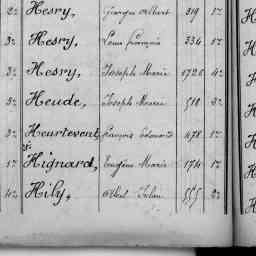 2e Hesry, Georges Albert 319 1e
3e Hesry, Louis François 334 1e
3e Hesry, Joseph Marie 1726 4e
3e Heude, Joseph Marie 510 3e
3e Heurtevent, François Edouard 478 1e
1e Hignard, Eugène Marie 174 1e
4e Hily, Abel Jules 555 2e